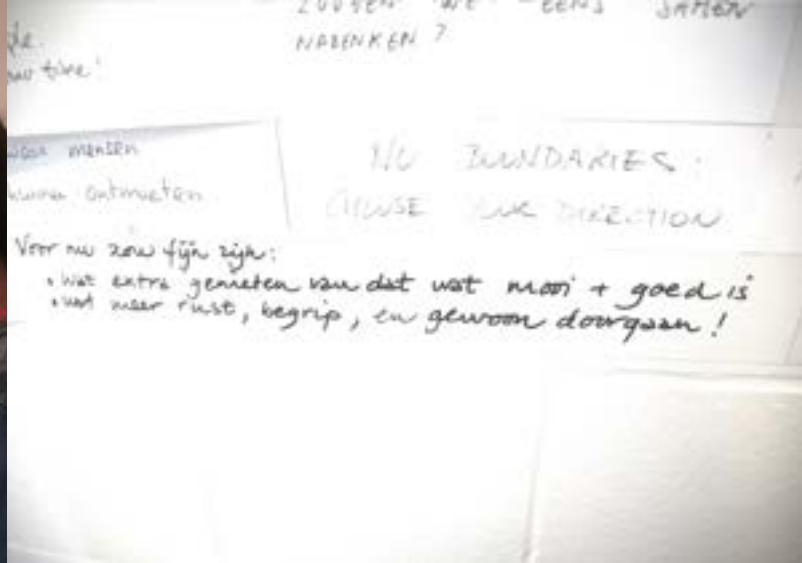 ZULLEN WE EENS SAMEN
NADENKEN?
time!
mensen
ontmoeten
NO BOUNDARIES:
CHOOSE YOUR DIRECTION
Voor nu zou fijn zijn:
• wat extra genieten van dat wat mooi + goed is
• wat meer rust, begrip, en gewoon doorgaan!